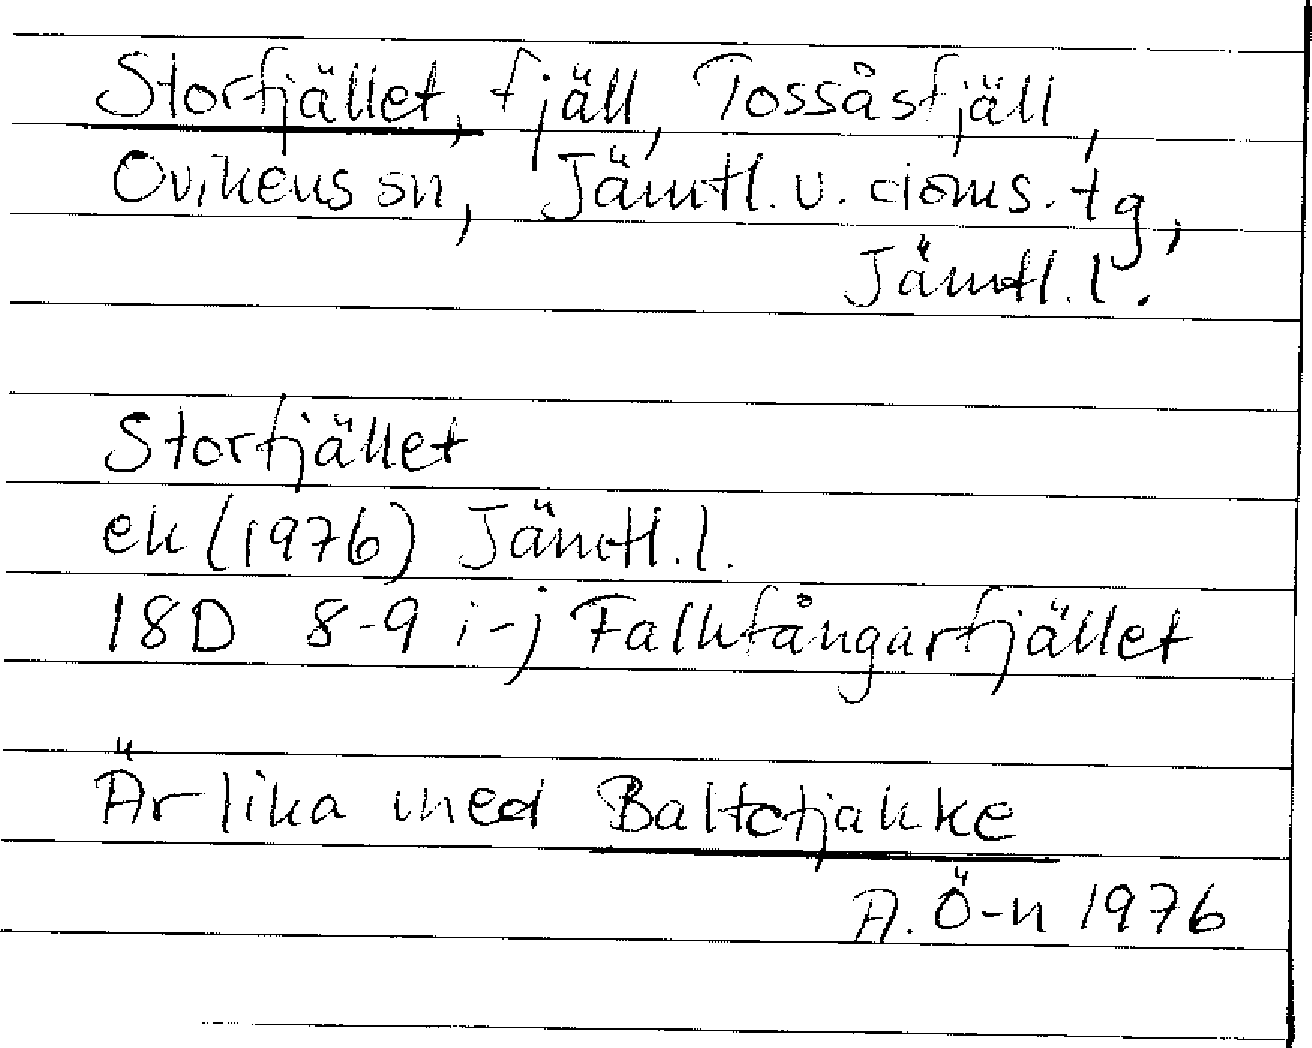 Storfjället, fjäll, Tossåsfjäll,
Ovikens sn, Jämtl. v. doms. tg,
Jämtl. l.
Storfjället
ek (1976) Jämtl. l.
18D 8-9 i-j Falkfångarfjället
Är lika med Baltctjakke
A. Ö-n 1976